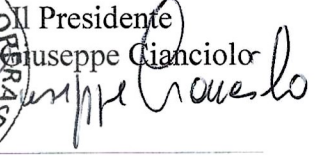 Il Presidente
Giuseppe Cianciolo
Giuseppe Cianciolo